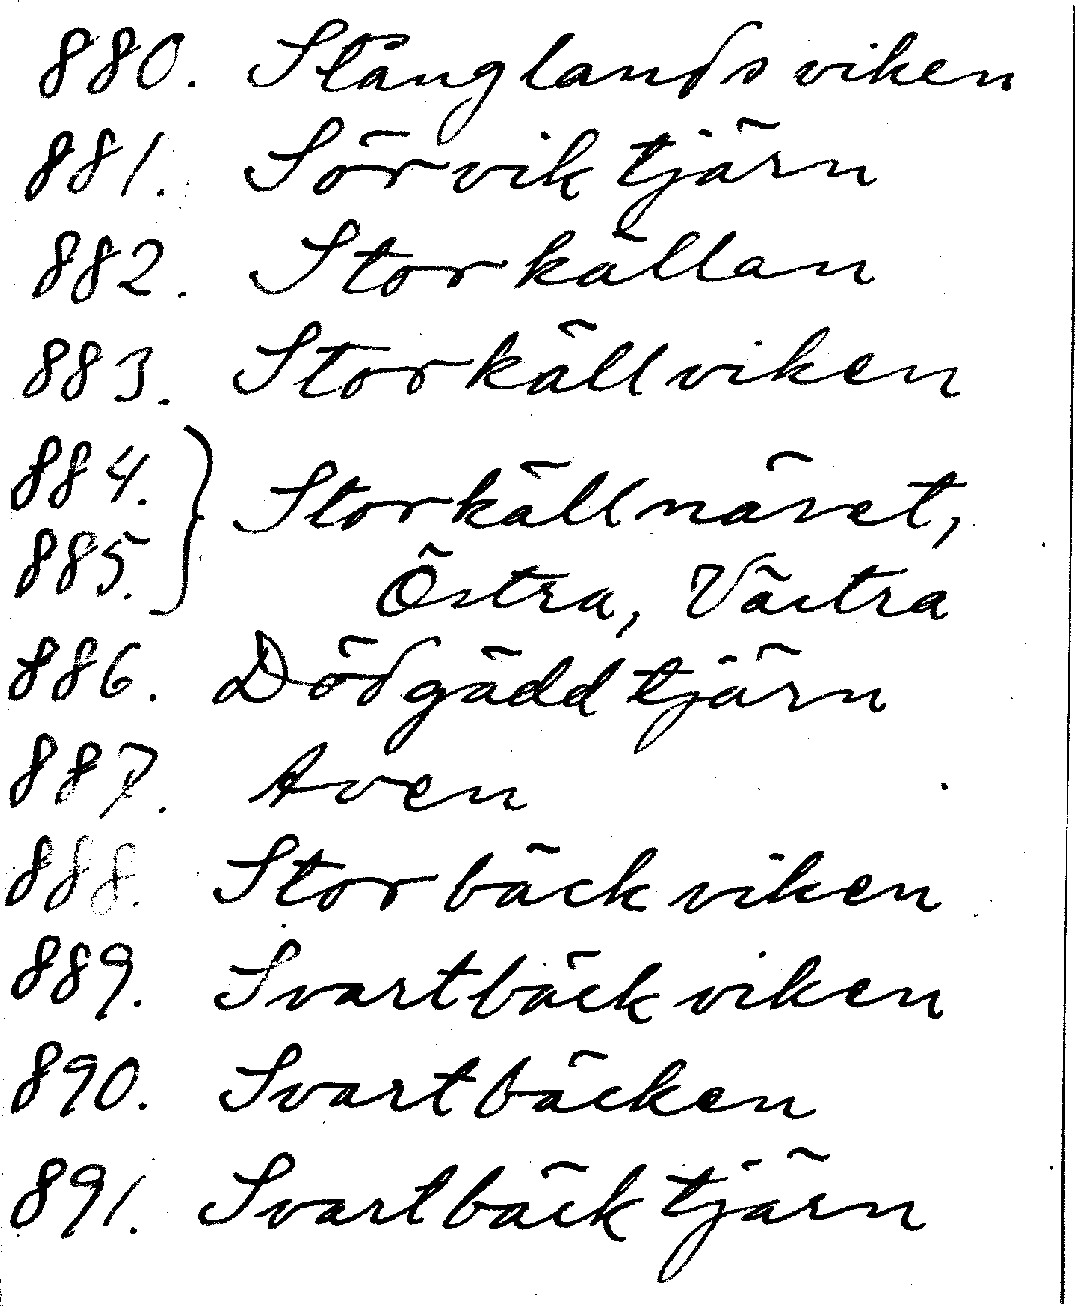 880. Stånglandsviken
881. Sörviktjärn
882. Storkällan
883. Storkällviken
884. Storkällnäret,
885. Östra, Västra
886. Dödgäddtjärn
887. Aven
888. Storbäckviken
889. Svartbäckviken
890. Svartbäcken
891. Svartbäcktjärn